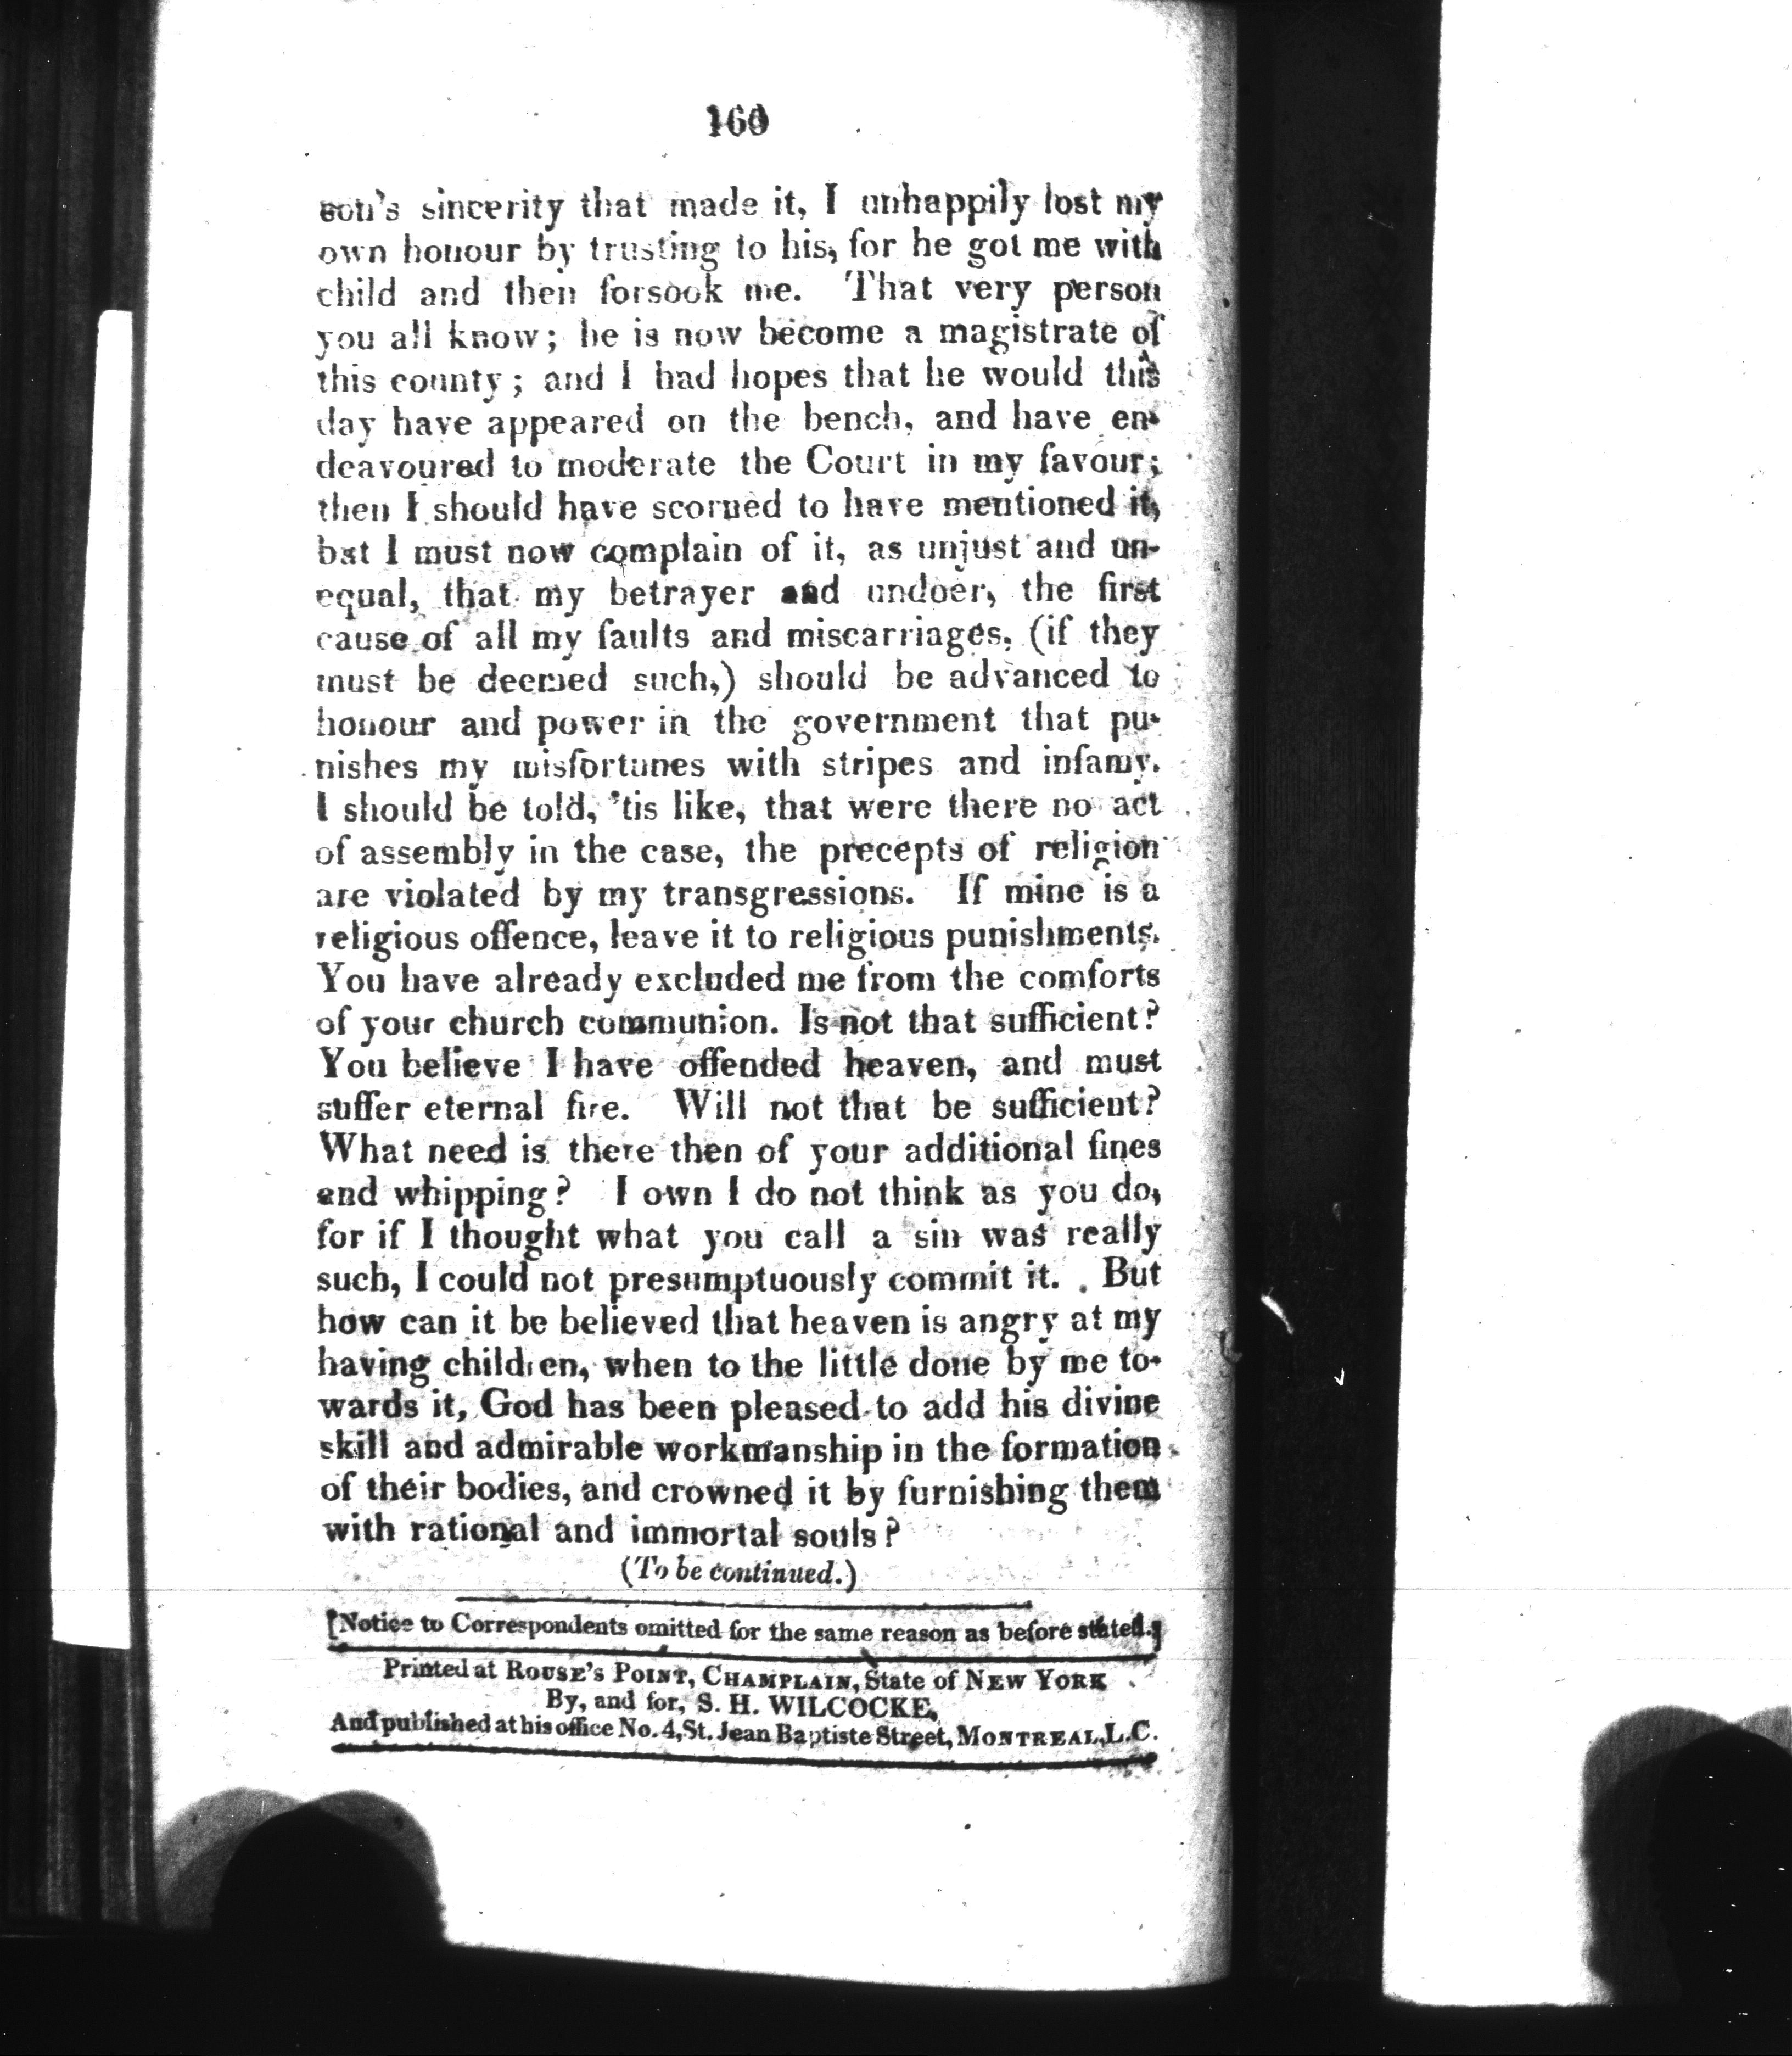 160
son's sincerity that made it, I unhappily lost my
own honour by trusting to his, for he got me with
child and then forsook me. That very person
you all know; he is now become a magistrate of
this county; and I had hopes that he would this
day have appeared on the bench, and have en-
deavoured to moderate the Court in my favour;
then I should have scorned to have mentioned it,
but I must now complain of it, as unjust and un-
equal, that my betrayer and undoer, the first
cause of all my faults and miscarriages, (if they
must be deemed such,) should be advanced to
honour and power in the government that pu-
nishes my misfortunes with stripes and infamy.
I should be told, 'tis like, that were there no act
of assembly in the case, the precepts of religion
are violated by my transgressions. If mine is a
religious offence, leave it to religious punishments.
You have already excluded me from the comforts
of your church communion. Is not that sufficient?
You believe I have offended heaven, and must
suffer eternal fire. Will not that be sufficient?
What need is there then of your additional fines
and whipping? I own I do not think as you do,
for if I thought what you call a sin was really
such, I could not presumptuously commit it. But
how can it be believed that heaven is angry at my
having children, when to the little done by me to-
wards it, God has been pleased to add his divine
skill and admirable workmanship in the formation
of their bodies, and crowned it by furnishing them
with rational and immortal souls?
(To be continued.)
[Notice to Correspondents omitted for the same reason as before stated.]
Printed at ROUSE'S POINT, CHAMPLAIN, State of NEW YORK
By, and for, S. H. WILCOCKE,
And published at his office No. 4, St. Jean Baptiste Street, MONTREAL, L.C.